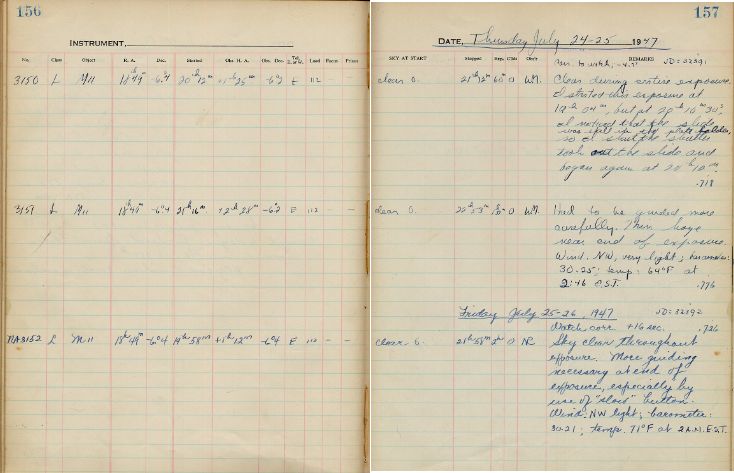 156
INSTRUMENT,
No. Class Object R. A. Dec. Started Obs. H. A. Obs. Dec. Tel. E. or W. Load Focus Prism
3150 L M11 18h49m -6°.4 20h12m +1h25m -6°.2 E 112 - -
3151 L M11 18h49m -6°.4 21h16m +2h28m -6°.2 E 112 - -
NA3152 L M11 18h49m -6°.4 19h58m +1h12m -6°.4 E 112 - -
157
DATE, Thursday July 24-25 1947
SKY AT START Stopped Exp. Clds Obsr. REMARKS
JD=32391
clear 0. 21h12m 60m 0 WM. Clear during entire exposure.
I started this exposure at
but at 20h10m30s
I noticed that the slide
was still in the plate holder,
so I shut the shutter
took out the slide and
began again at 20h10m.
.718
clear 0. 0 WM. Had to be guided more
carefully. Thin haze
near end of exposure.
Wind. NW, very light; barometer:
30.25; temp. 64°F at
2:46 E.S.T. .776
Friday July 25-26, 1947 JD=32392
Watch corr. +16 sec. .726
clear 0. 21h58m 2h 0 NR Sky clear throughout
exposure. More guiding
necessary at end of
exposure, especially by
use of "slow" button.
Wind: NW light; barometer:
30.21; temp. 71°F at 2 A.M. E.S.T.